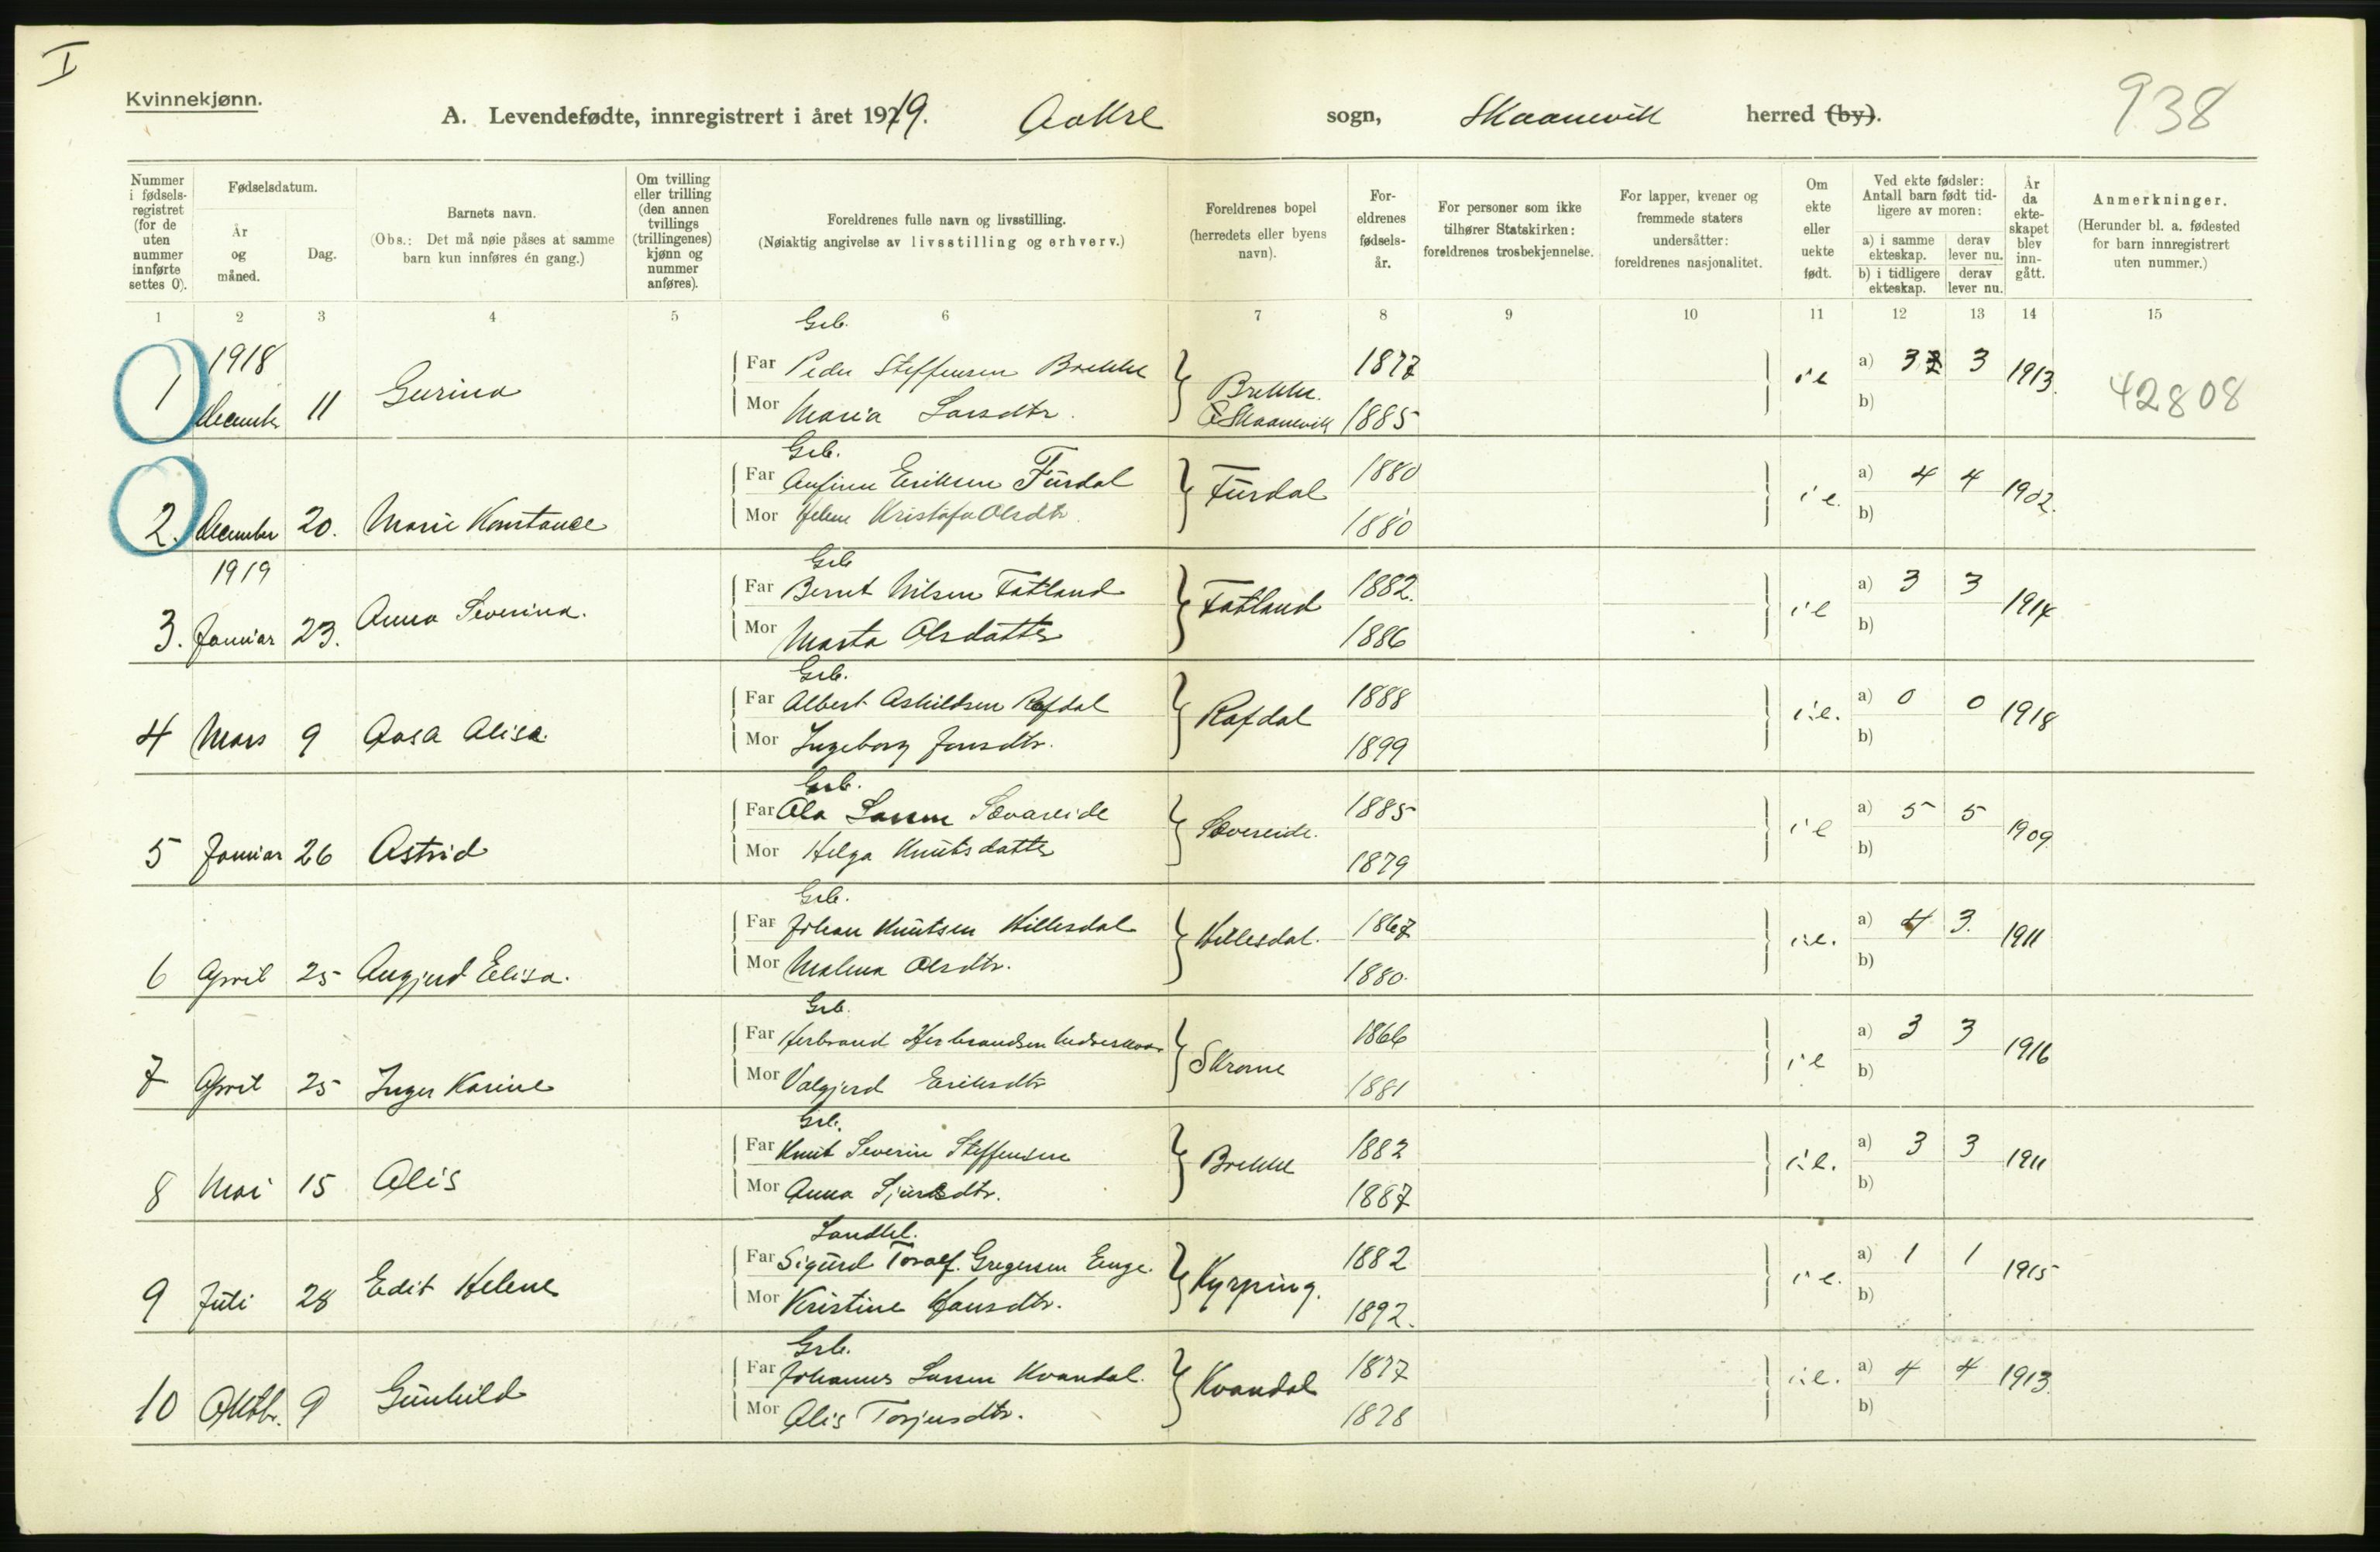 I
Kvinnekjønn.
A. Levendefødte, innregistrert i året 1919. Aakre sogn, Skaanevik herred (by). 938
Nummer i fødsels-registret (for de uten nummer innførte settes 0).
Fødselsdatum.
År og måned.
Dag.
Barnets navn.
(Obs.: Det må nøie påses at samme barn kun innføres én gang.)
Om tvilling eller trilling (den annen tvillings (trillingenes) kjønn og nummer anføres).
Foreldrenes fulle navn og livsstilling.
(Nøiaktig angivelse av livsstilling og erhverv.)
Foreldrenes bopel (herredets eller byens navn).
For-eldrenes fødsels-år.
For personer som ikke tilhører Statskirken: foreldrenes trosbekjennelse.
For lapper, kvener og fremmede staters undersåtter: foreldrenes nasjonalitet.
Om ekte eller uekte født.
Ved ekte fødsler: Antall barn født tid-ligere av moren:
a) i samme ekteskap.
derav lever nu.
b) i tidligere ekteskap.
derav lever nu.
År da ekte-skapet blev inn-gått.
Anmerkninger.
(Herunder bl. a. fødested for barn innregistrert uten nummer.)
1 2 3 4 5 6 7 8 9 10 11 12 13 14 15
Grb.
1918
Far Peder Steffensen Brekke 1877 a) 3 3 1913
1 December 11 Gurina Brekke. i e 42808
Mor Maria Larsdtr. Skaanevik 1885 b)
Grb.
Far Anfinn Eriksen Fürdal 1880 a) 4 4 1902.
2. December 20. Marie Konstance Fürdal i e.
Mor Helene Kristofa Olsdtr 1880 b)
Grb
1919
Far Bernt Nilsen Fatland 1882. a) 3 3 1914
3. Januar 23. Anna Severina. Fatland i e
Mor Marta Olsdatter 1886 b)
Grb.
Far Albert Askildsen Rafdal 1888 a) 0 0 1918
4 Mars 9 Aasa Alisa. Rafdal i.e.
Mor Ingeborg Jonsdtr. 1899 b)
Grb.
Far Ola Larsen Sævareide 1885 a) 5 5 1909
5 Januar 26 Astrid Sævereide. i e
Mor Helga Knütsdatter 1879 b)
Grb.
Far Johan Knütsen Hillesdal 1867 a) 4 3. 1911
6 April 25 Angjerd Elisa. Hillesdal. i.e.
Mor Malena Olsdtr. 1880. b)
Grb.
Far Herbrand Herbrandsen 1866 a) 3 3 1916
7 April 25 Inger Karine Skrome i e
Mor Valgjerd Eriksdtr 1881 b)
Grb.
Far Knüt Severin Steffensen 1882 a) 3 3 1911
8 Mai 15 Alis Brekke i.e.
Mor Anna Sjursdtr. 1887 b)
Landhl.
Far Sigürd Toralf. Gregersen Enge. 1882 a) 1 1 1915
9 Jüli 28 Edit Helene Kyrping. i e.
Mor Kristine Hansdtr. 1892. b)
Grb.
Far Johannes Larsen Kvandal. 1877 a) 4 4 1913.
10 Oktbr. 9 Günhild Kvandal i.e.
Mor Alis Torjusdtr. 1878 b)